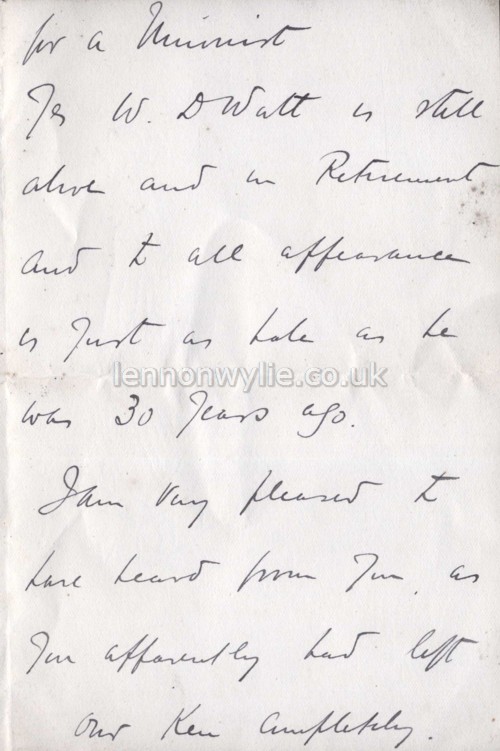 for a Unionist
Yes W. D Watt is still
alive and in Retirement
and to all appearance
is just as hale as he
lennonwylie.co.uk
was 30 years ago.
I am very pleased to
have heard from you, as
you apparently had left
our Ken completely.